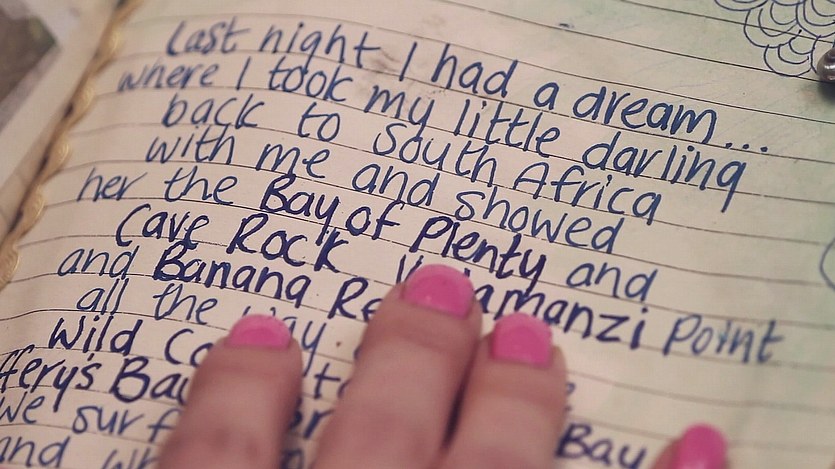 last night I had a dream...
where I took my little darling
back to South Africa
with me and showed
her the Bay of Plenty and
Cave Rock amanzi Point
and Banana Re
all the way.
Wild Co
ffery's Bay to
we surf or Bay
and wh